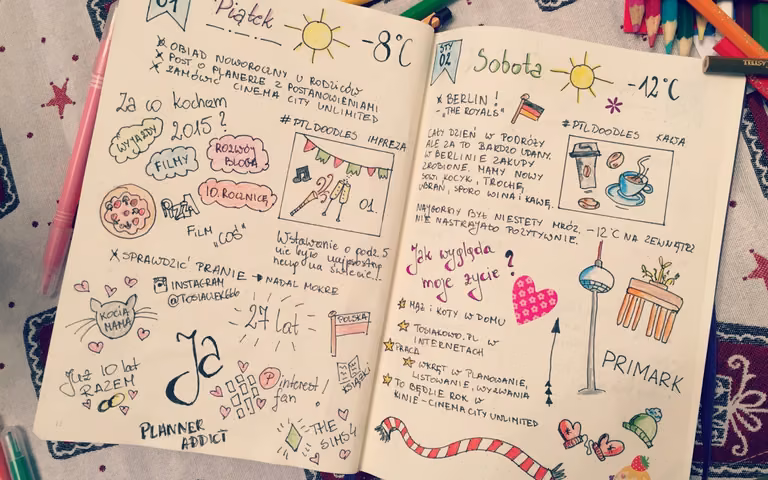 01
Piątek
-8°C
OBIAD NOWOROCZNY U RODZICÓW
POST O PLANERZE Z POSTANOWIENIAMI
ZAMÓWIĆ CINEMA CITY UNLIMITED
Za co kocham
2015?
WYJAZDY
FILMY
ROZWÓJ
BLOGA
10. ROCZNICĘ
PIZZA
FILM „COŚ"
#PTLDOODLES IMPREZA
01.
Wstawanie o godz. 5
nie było najprostszą
SPRAWDZIĆ PRANIE → NADAL MOKRE
INSTAGRAM
@TOSIACZEK666
KOCIA
MAMA
27 lat
POLSKA
Ja
Już 10 lat
RAZEM
Pinterest!
fan
KSIĄŻKI
PLANNER
ADDICT
THE
SIMS4
STY
02
Sobota
-12°C
BERLIN!
- „THE ROYALS"
#PTLDOODLES KAWA
CAŁY DZIEŃ W PODRÓŻY
ALE ZA TO BARDZO UDANY.
W BERLINIE ZAKUPY
ZROBIONE. MAMY NOWY
SOWI KOCYK, TROCHĘ
UBRAŃ, SPORO WINA I KAWĘ.
NAJGORSZY BYŁ NIESTETY MRÓZ. -12°C NA ZEWNĄTRZ
NIE NASTRAJAŁO POZYTYWNIE.
Jak wygląda
moje życie?
MĄŻ I KOTY W DOMU
TOSIAKOWO.PL W
INTERNETACH
PRACA
WKRĘT W PLANOWANIE,
LISTOWANIE, WYZWANIA
TO BĘDZIE ROK W
KINIE - CINEMA CITY UNLIMITED
PRIMARK